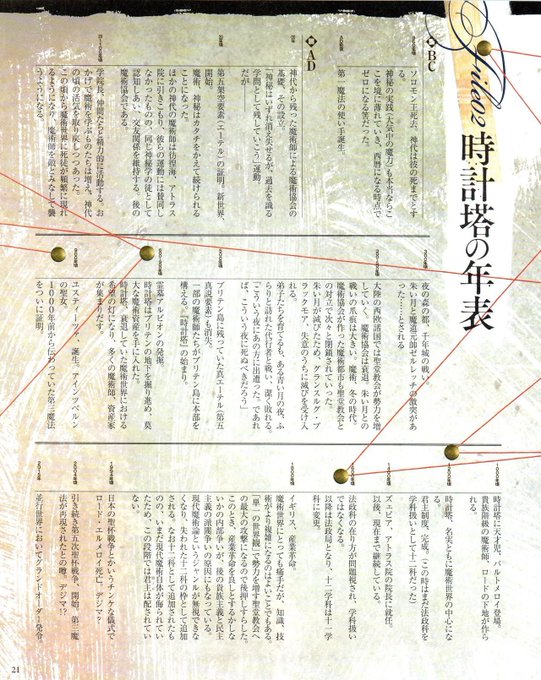 File.02 時計塔の年表
BC
ソロモン王死去。神代は彼の死まで​とする。
神秘の実践(大気中の魔力)も本当ならここを境に薄れていき、西暦になる時点でゼロになる筈だった。
第一魔法の使い手誕生。
AD
神代から残った魔術師による魔術協会の基礎、その設立。
「神秘はいずれ消え失せるが、過去を識る学問として残していこう」運動、だが
第五架空要素(エーテル)の証明。新世界、開始。
魔術、神秘はカタチをかえて続けられることになった。
ほかの神代の魔術師は彷徨海、アトラス院に引きこもり、彼らの運動には賛同しなかったものの、同じ神秘学の徒として認知しあい、交友関係を維持する。後の魔術協会である。
学院長、仲間たちと精力的に活動する。おかげで魔術を学ぶものたちは増え、神代の頃の活気を取り戻しつつあった。
この頃から魔術世界に死徒が頻繁に現れるようになり、魔術師を敵とみなして襲うようになる。
夜の森の都、千年城の戦い。
朱い月と魔道元帥ゼルレッチの激突があった……とされる
大陸の西欧諸国では聖堂教会が勢力を増していき、魔術協会は衰退。朱い月との戦いの爪痕は大きい。魔術、冬の時代。
魔術協会が作った魔術都市も聖堂教会との対立で次々と閉鎖されていった。
朱い月が滅びたため、グランスルグ・ブラックモア、失意のうちに滅びを受け入れる。
弟子たちを育てるも、ある青い月の夜、ふらりと訪れた代行者と戦い、潔く敗れる。
「こういう夜にあの方に出遭った。であれば、こういう夜に死ぬべきだろう」
ブリテン島に残っていた真エーテル(第五真説要素)も消失。
一部の魔術師たちがブリテン島に本部を構える。『時計塔』の始まり。
霊墓アルビオンの発掘。
時計塔はブリテンの地下を掘り進め、莫大な魔術資産を手に入れた。
時計塔、衰退していた魔術世界における希望の灯になり、多くの魔術師、資産家が集まりだす。
ユスティーツァ、誕生。アインツベルンの聖女。
1000年前から伝わっていた第三魔法をついに証明。
時計塔に天才児、バルトメロイ登場。
貴族階級の魔術師、ロードの下地が作られる。
時計塔、名実ともに魔術世界の中心になる。
君主制度、完成。(この時はまだ法政科を学科扱いとして十二科だった)
ズェピア、アトラス院の院長に就任。
以後、現在まで継続している。
法政科の在り方が問題視され、学科扱いではなくなる。
以降は法政局となり、十二学科は十一学科に変更。
イギリス、産業革命。
魔術世界にとっても痛手だが、知識、技術がより複雑になるのはよいことでもある。
「単一の世界観」で勢力を増す聖堂教会への最大の攻撃になるので後押しすらした。
このとき、産業革命を良しとするかしないかの内部争いが、後の貴族主義と民主主義の派閥争いの原因にもなっている。
現代魔術論というジャンルが無視できなくなり、失われた十三科の枠として追加される。なお十二科として追加されたものの、いまだ現代魔術自体が侮られていたため、この段階では君主は配されていない。
日本の聖杯戦争とかいうチンケな儀式でロード・エルメロイ死亡。デジマ!?
引き続き第五次聖杯戦争、開始。第三魔法が再現されたとの噂。デジマ!?
並行世界においてグランドオーダー発令。
21